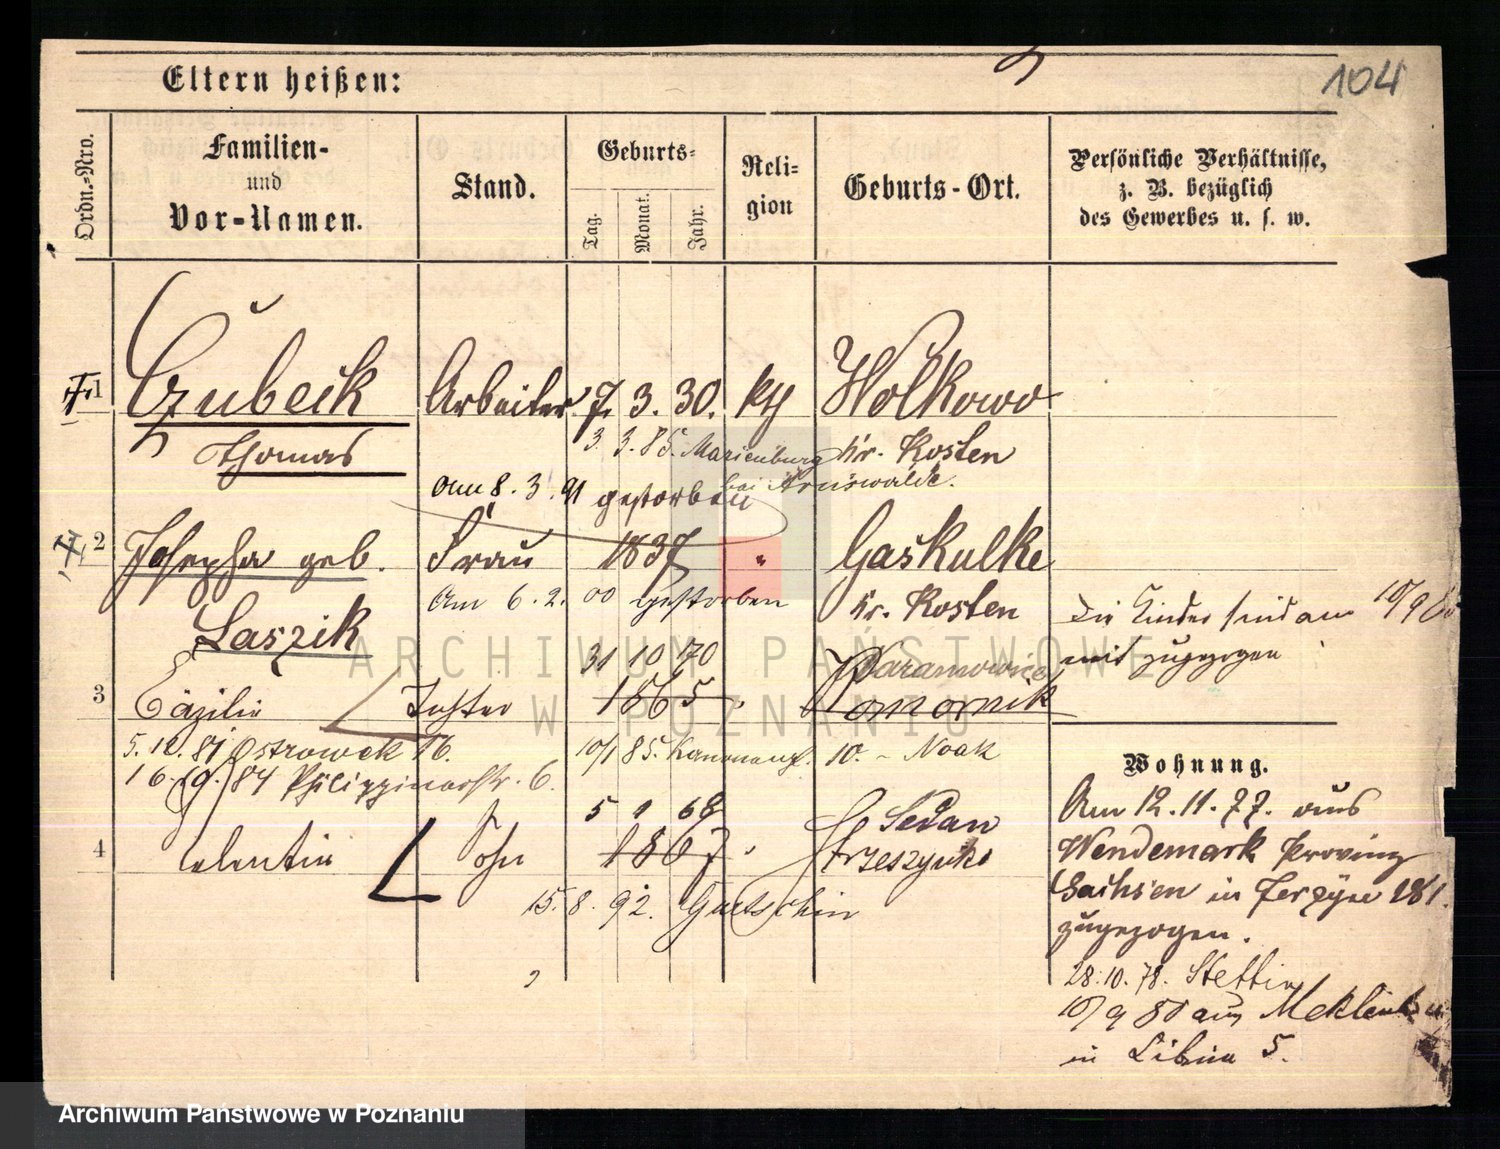 104
Eltern heißen:
Ordn.-Nro.
Familien-
und
Vor-Namen.
Stand.
Geburts-
Tag.
Monat.
Jahr.
Reli-
gion
Geburts-Ort.
Persönliche Verhältnisse,
z. B. bezüglich
des Gewerbes u. s. w.
1 Czubeck Arbeiter 7. 3. 30. kth Wolkowo
Thomas 3. 3. 85. Marienburg Kr. Kosten
bei Arnswalde.
am 8. 3. 91 gestorben
2 Josepha geb. Frau 1837 " Gaskulke
Laszik Am 6. 2. 00 gestorben Kr. Kosten
Die Kinder sind am 10/9 80
mit zugezogen
31 10 70 Paramowice
3 Cäzilie Tochter 1865 Komornik
5. 12. 81 Ostrowek 16. 10/1 85. Kanonenpl. 10. - Noak
16. (9.) 84 Philippinerstr. 6.
Wohnung.
5 1 68 Sedan
4 Valentin Sohn 1867 Strzeszynki
15. 8. 92. Gurtschin
Am 12. 11. 77. aus
Wendemark Provinz
Sachsen in Jerzyce 181.
zugezogen.
28. 10. 78. Stettin
10/9 80 aus Meklenb
in 5.
ARCHIWUM PAŃSTWOWE
W POZNANIU
Archiwum Państwowe w Poznaniu